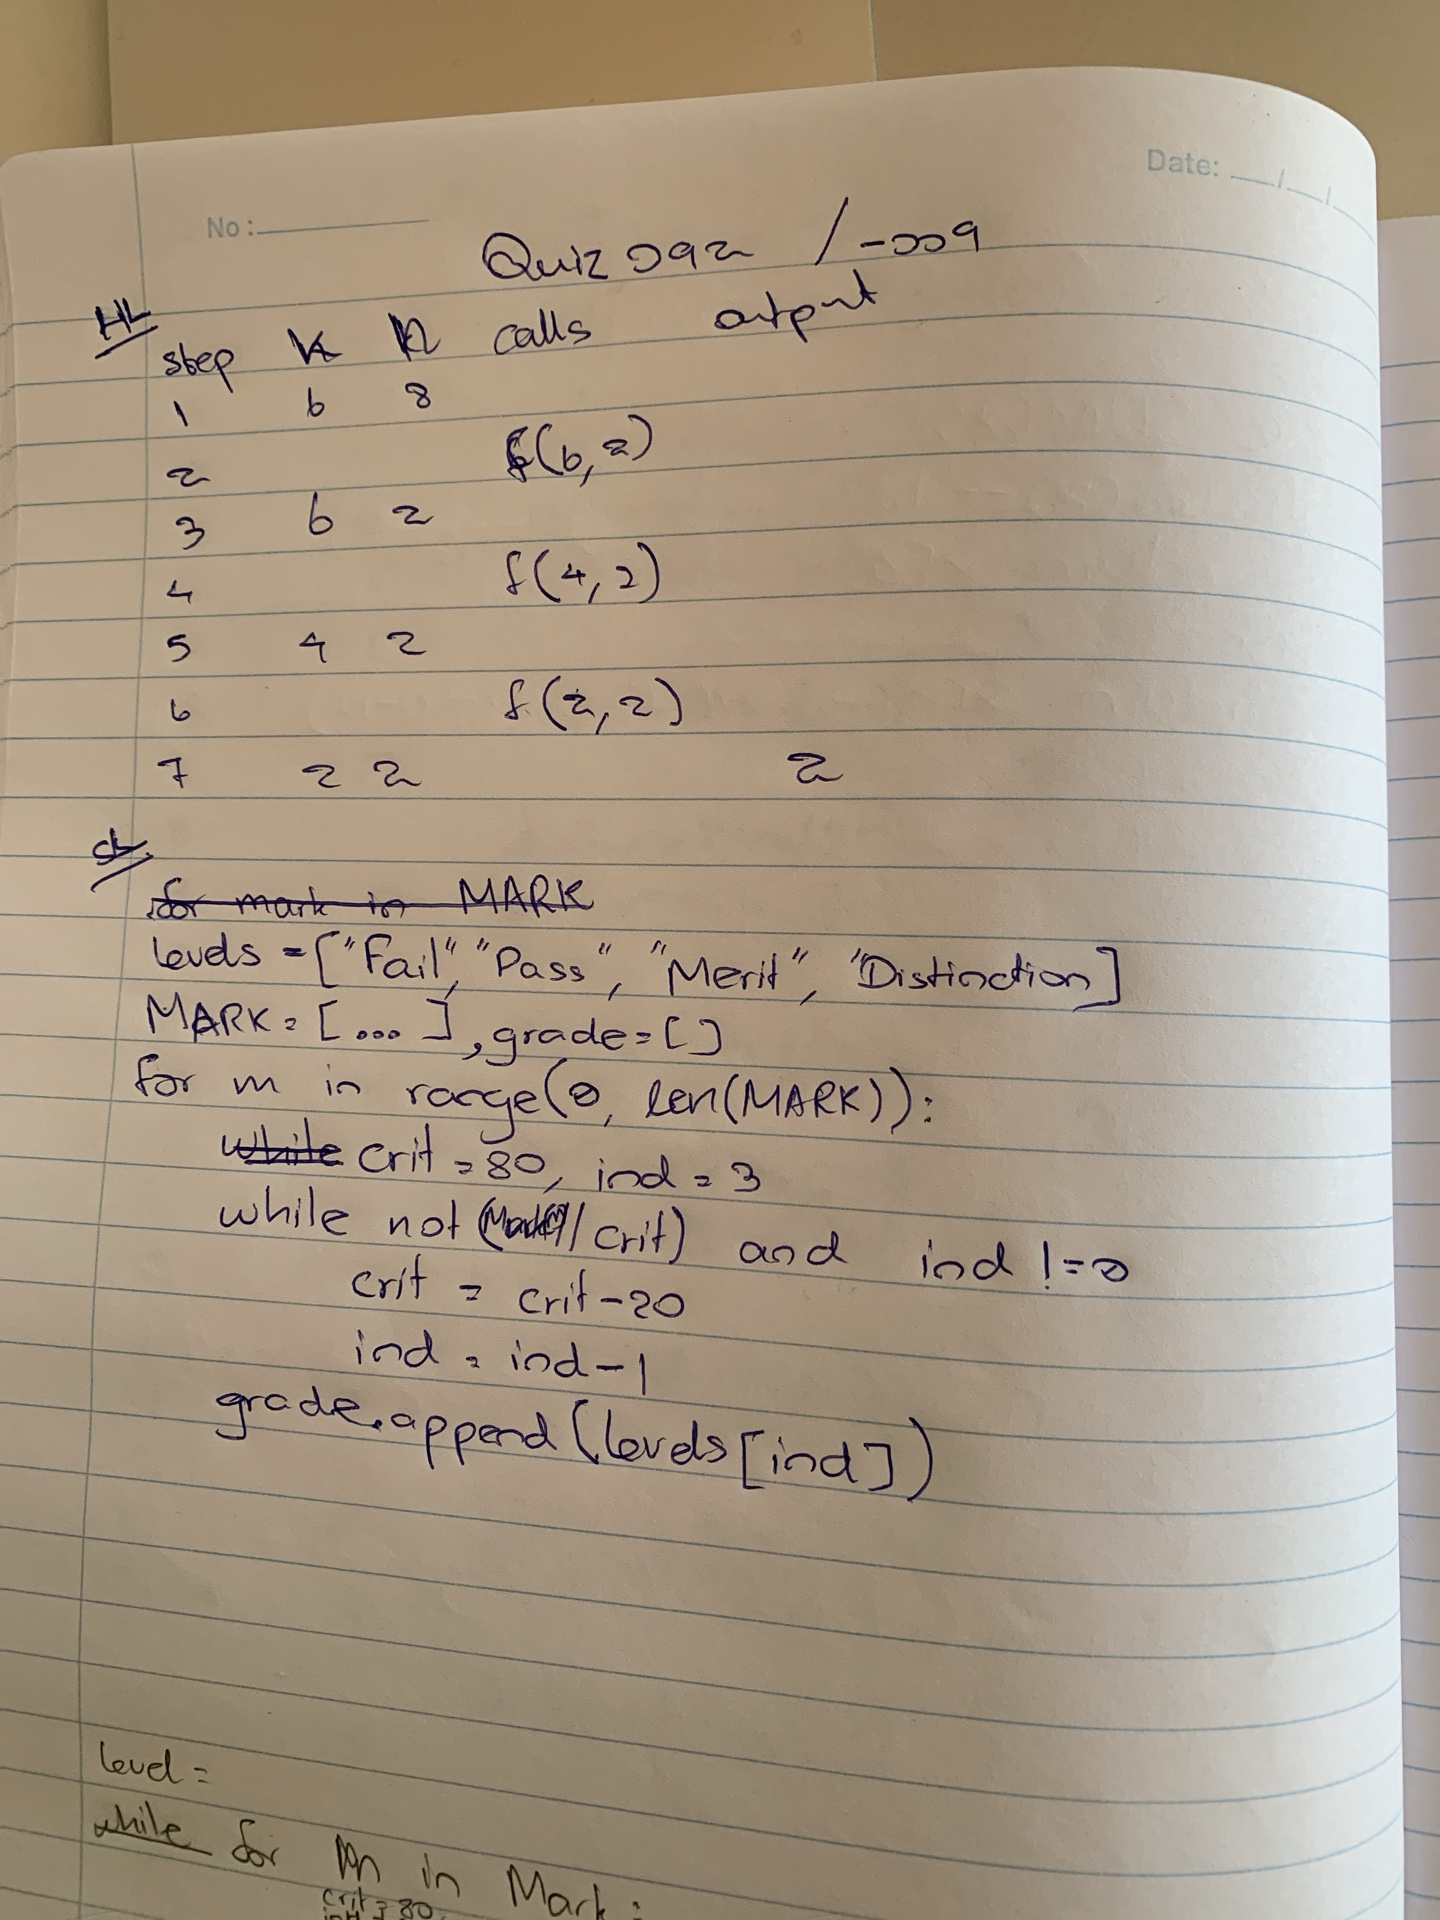 Date: __/__/__
No:
Quiz 092 /-009
HL
step K n calls output
1 6 8
2 f(6,2)
3 6 2
4 f(4,2)
5 4 2
6 f(2,2)
7 2 2 2
SL
for mark in MARK
levels = ["Fail", "Pass", "Merit", "Distinction]
MARK = [...], grade = []
for m in range(0, len(MARK)):
while crit = 80, ind = 3
while not (Mark[m]//crit) and ind != 0
crit = crit-20
ind = ind-1
grade.append(levels[ind])
level =
while for m in Mark:
crit = 80